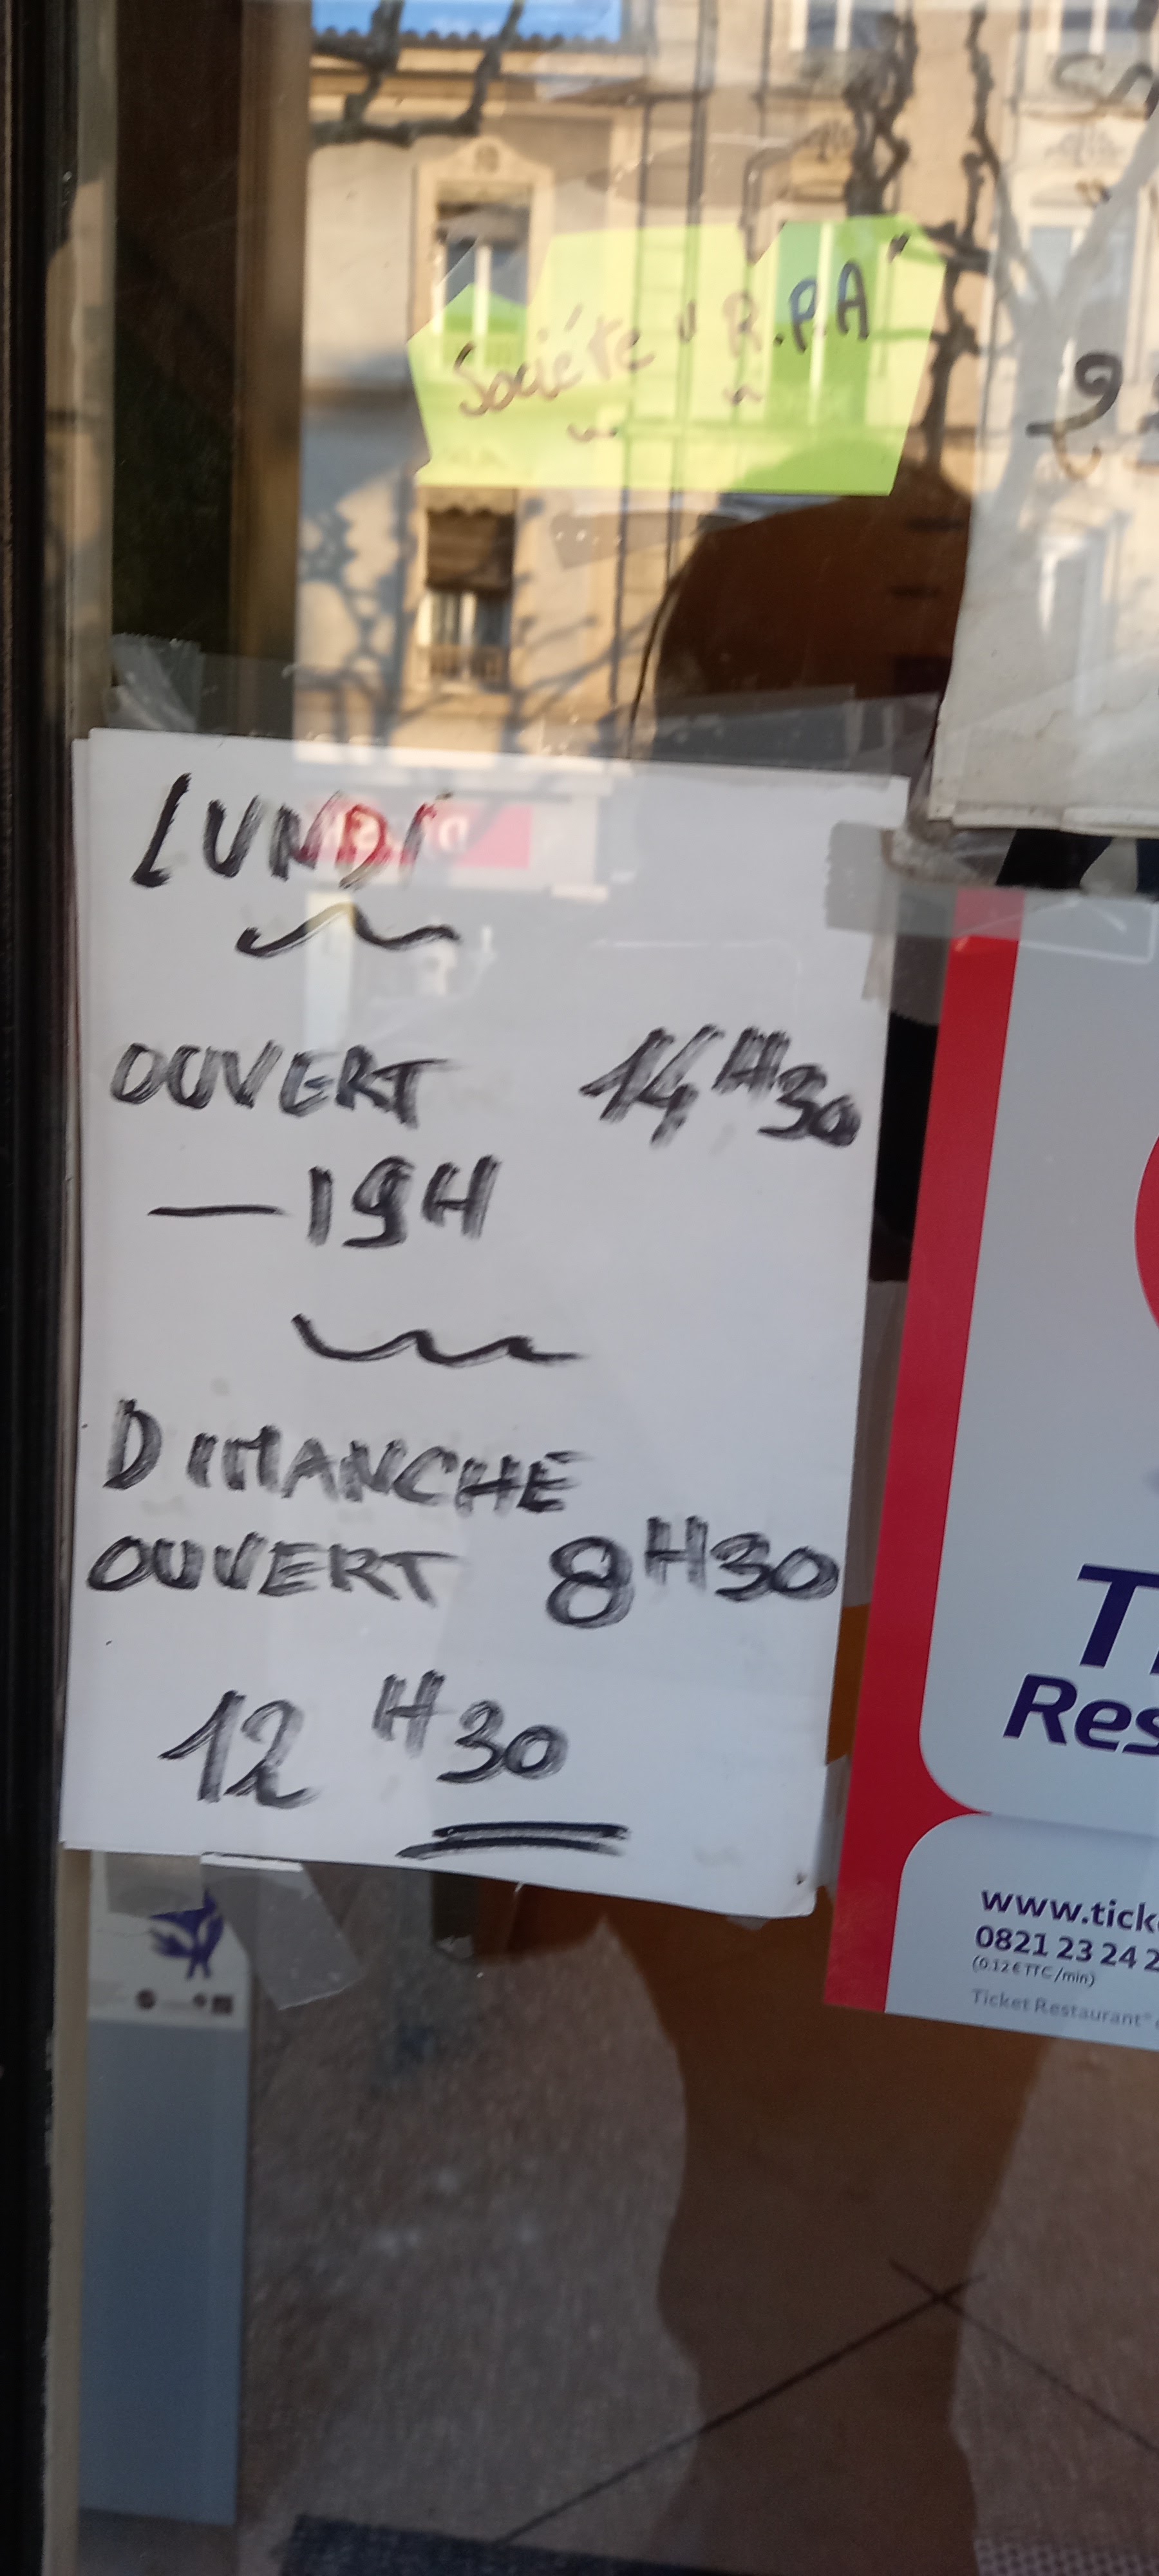 Société "R.P.A"
LUNDI
OUVERT 14H30
— 19H
DIMANCHE
OUVERT 8H30
12H30
Res
www.tick
0821 23 24 2
(0.12 € TTC/min)
Ticket Restaurant®